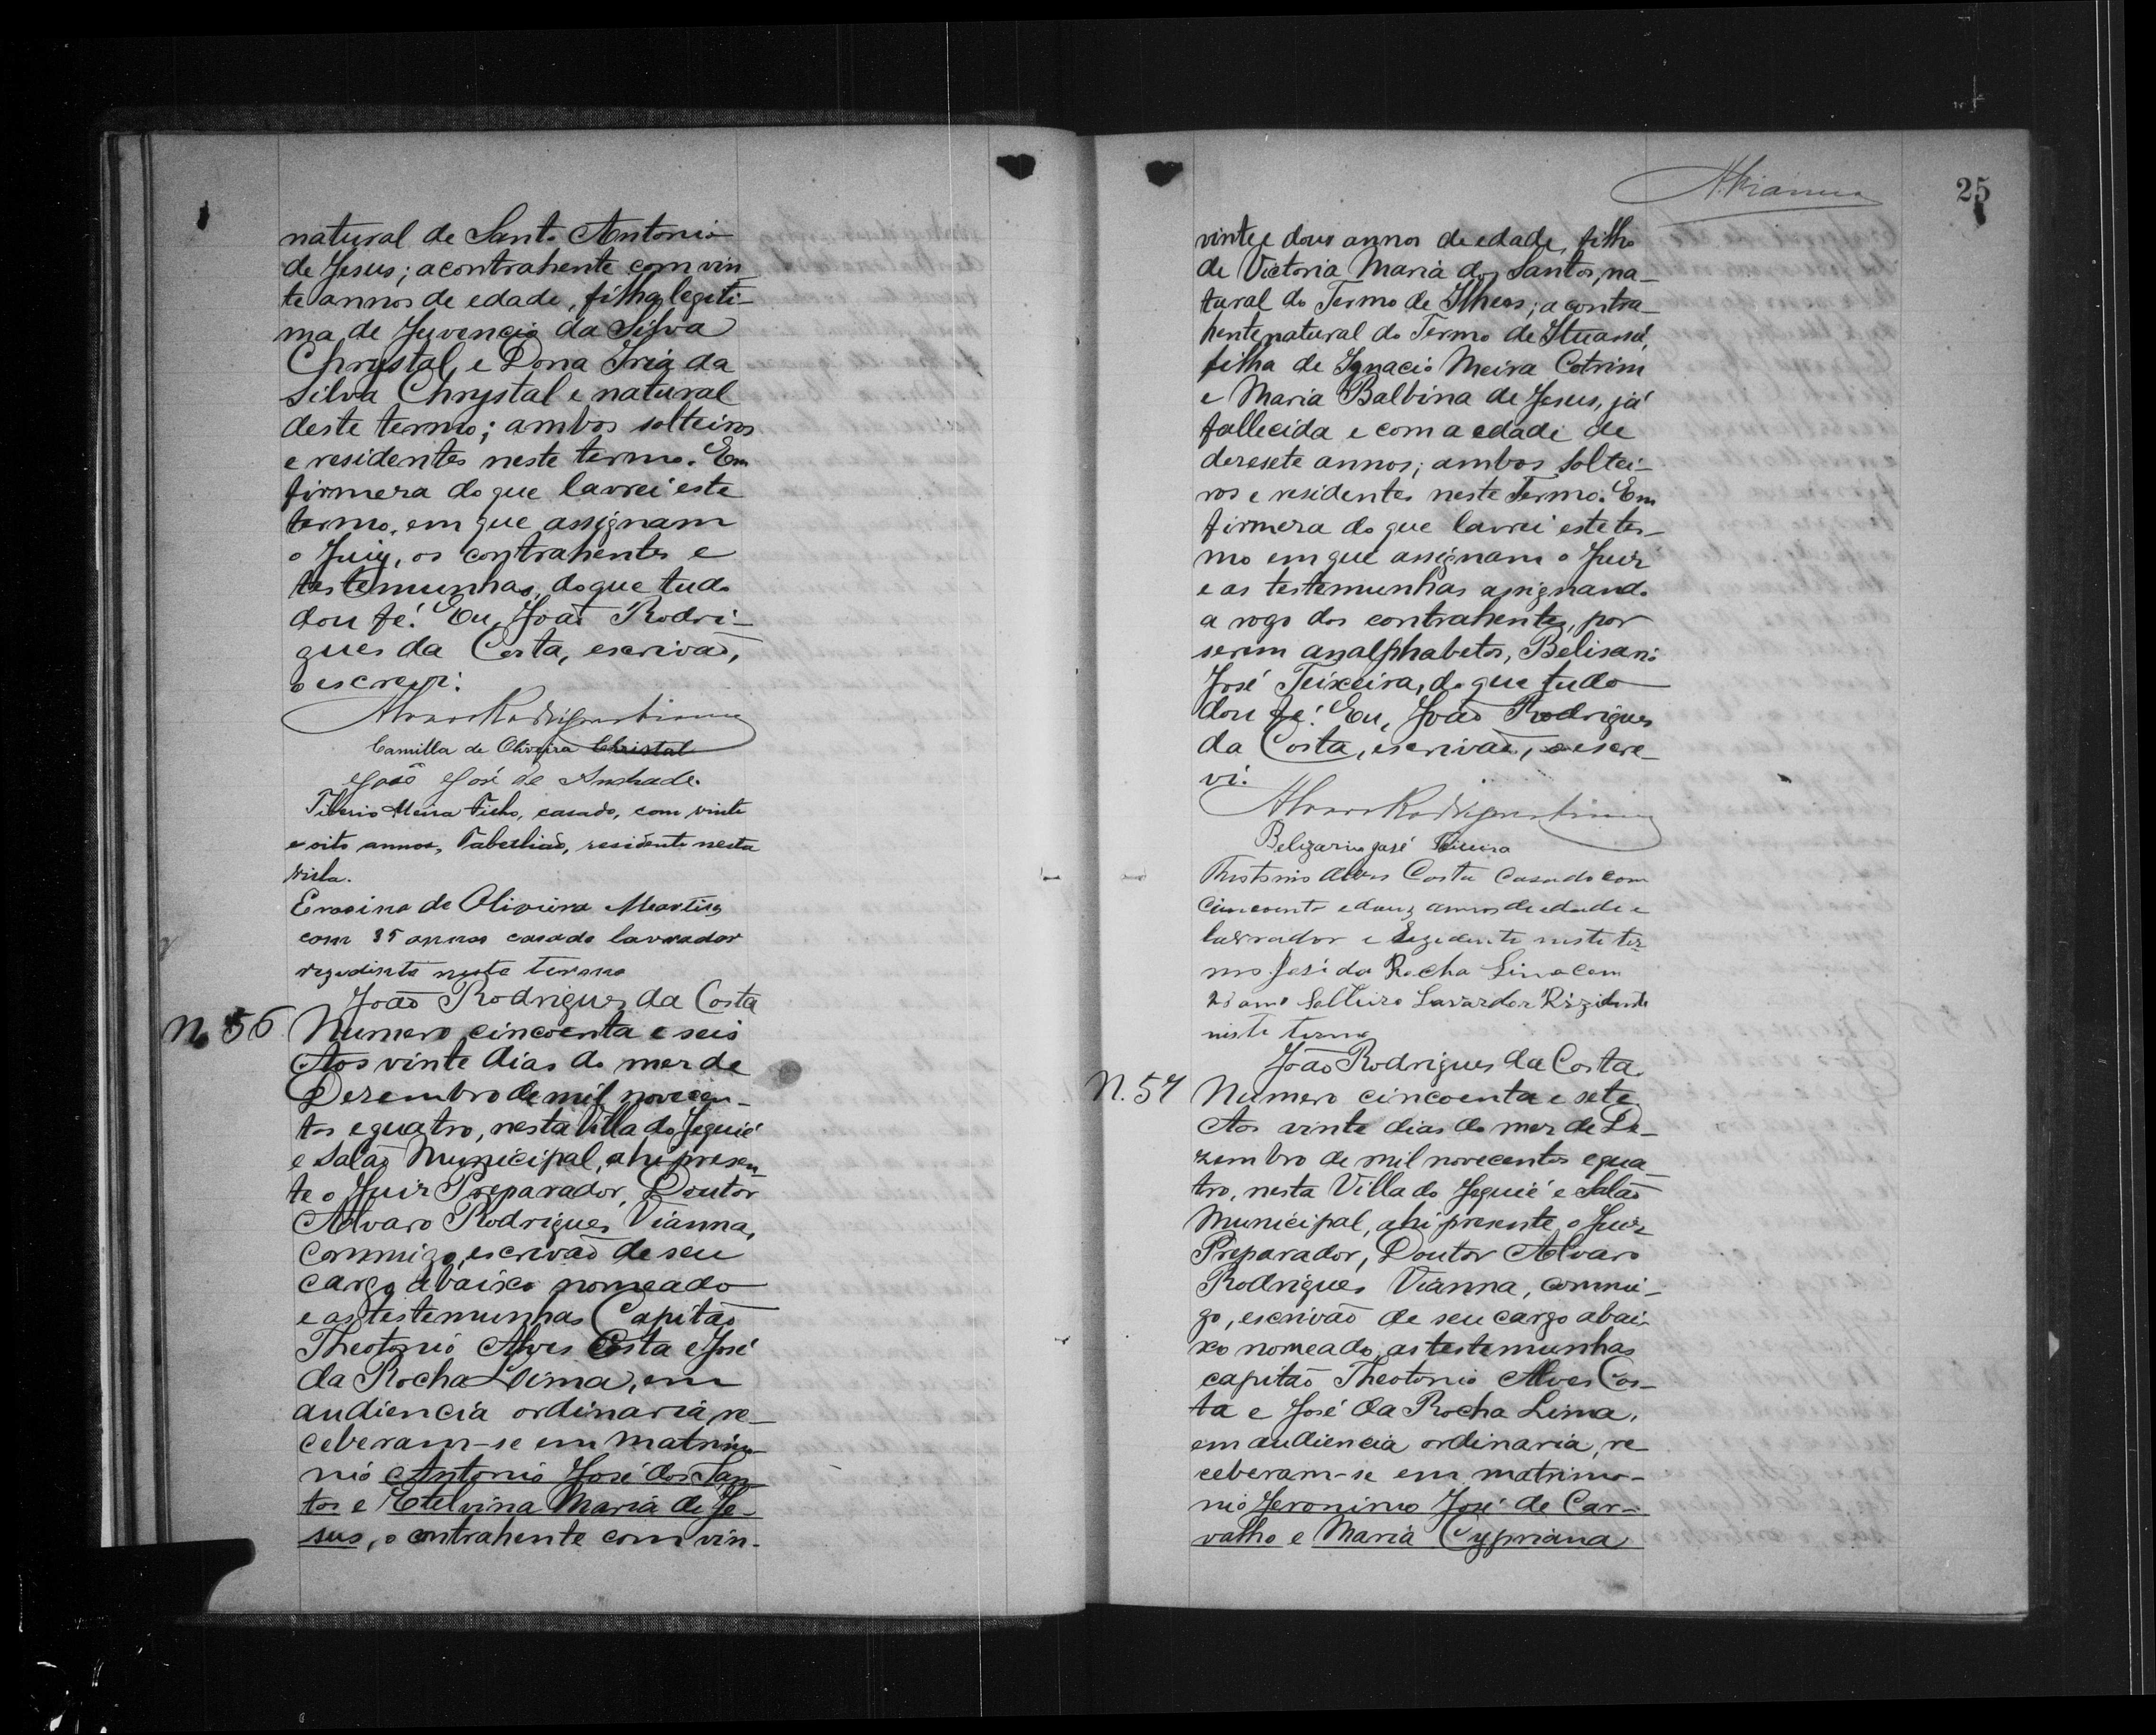 natural de Santo Antonio
de Jesus; a contrahente com vin_
te annos de edade, filha legiti_
ma de Juvencio da Silva
Chrystal, e Dona Iria da
Silva Chrystal e natural
deste termo; ambos solteiros
e residentes neste termo. Em
firmeza do que lavrei este
termo, em que assignam
o Juiz, os contrahentes e
testemunhas, do que tudo
dou fé. Eu, João Rodri_
gues da Costa, escrivão,
o escrevi.
Alvaro Rodrigues Vianna
Camilla de Oliveira Christal
João José de Andrade.
Tiberio Meira Filho, casado, com vinte
e oito annos, Tabellião, residente nesta
villa.
de Oliveira Martins
com 35 annos casado lavrador
rezedinte neste termo
João Rodrigues da Costa
N. 56 Numero cincoenta e seis
Aos vinte dias do mez de
Dezembro de mil novecen_
tos e quatro, nesta Villa do Jequié
e Salão Municipal, ahi presen_
te o Juiz Preparador, Doutor
Alvaro Rodrigues Vianna,
commigo, escrivão de seu
cargo abaixo nomeado
e as testemunhas Capitão
Theotonio Alves Costa e José
da Rocha Lima, em
audiencia ordinaria, re_
ceberam-se em matrimo_
nio Antonio José dos San_
tos e Etelvina Maria de Je_
sus, o contrahente com vin_
AVianna
25
vinte e dous annos de edade, filho
de Victoria Maria dos Santos, na_
tural do Termo de Ilheos; a contra_
hente natural do Termo de Ituassú,
filha de Ignacio Meira Cotrim
e Maria Balbina de Jesus, já
fallecida e com a edade de
dezesete annos; ambos soltei_
ros e residentes neste Termo. Em
firmeza do que lavrei este ter_
mo em que assignam o Juiz
e as testemunhas assignando
a rogo dos contrahentes, por
serem analphabetos, Belisario
José Teixeira, do que tudo
dou fé. Eu, João Rodrigues
da Costa, escrivão, o escre_
vi.
Alvaro Rodrigues Vianna
Belizario José Teixeira
Theotonio Alves Costa Casado com
Cincoenta e dous annos de edade e
lavrador e Rezedente neste ter_
mo José da Rocha Lima com
anno Solteiro Lavardor Rezidente
neste termo
João Rodrigues da Costa.
N. 57 Numero cincoenta e sete
Aos vinte dias do mez de De_
zembro de mil novecentos e qua_
tro, nesta Villa do Jequié e Salão
Municipal, ahi presente o Juiz
Preparador, Doutor Alvaro
Rodrigues Vianna, commi_
go, escrivão de seu cargo abai_
xo nomeado, as testemunhas
capitão Theotonio Alves Cos_
ta e José da Rocha Lima,
em audiencia ordinaria, re_
ceberam-se em matrimo_
nio Jeronimo José de Car_
valho e Maria Cypriana